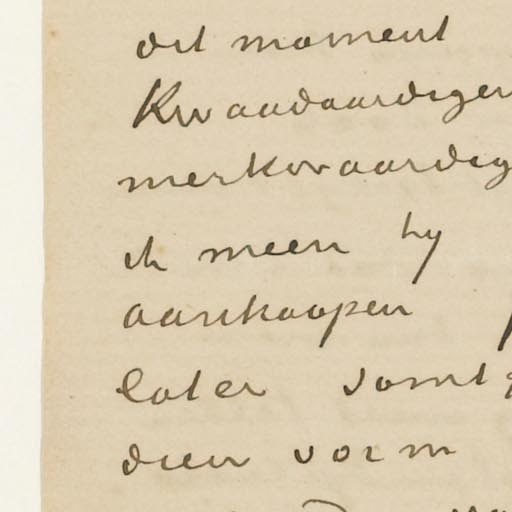 dit moment
Kwaadaardiger
merkwaardig
ik meen hy
aankoopen
later somt
dien vorm